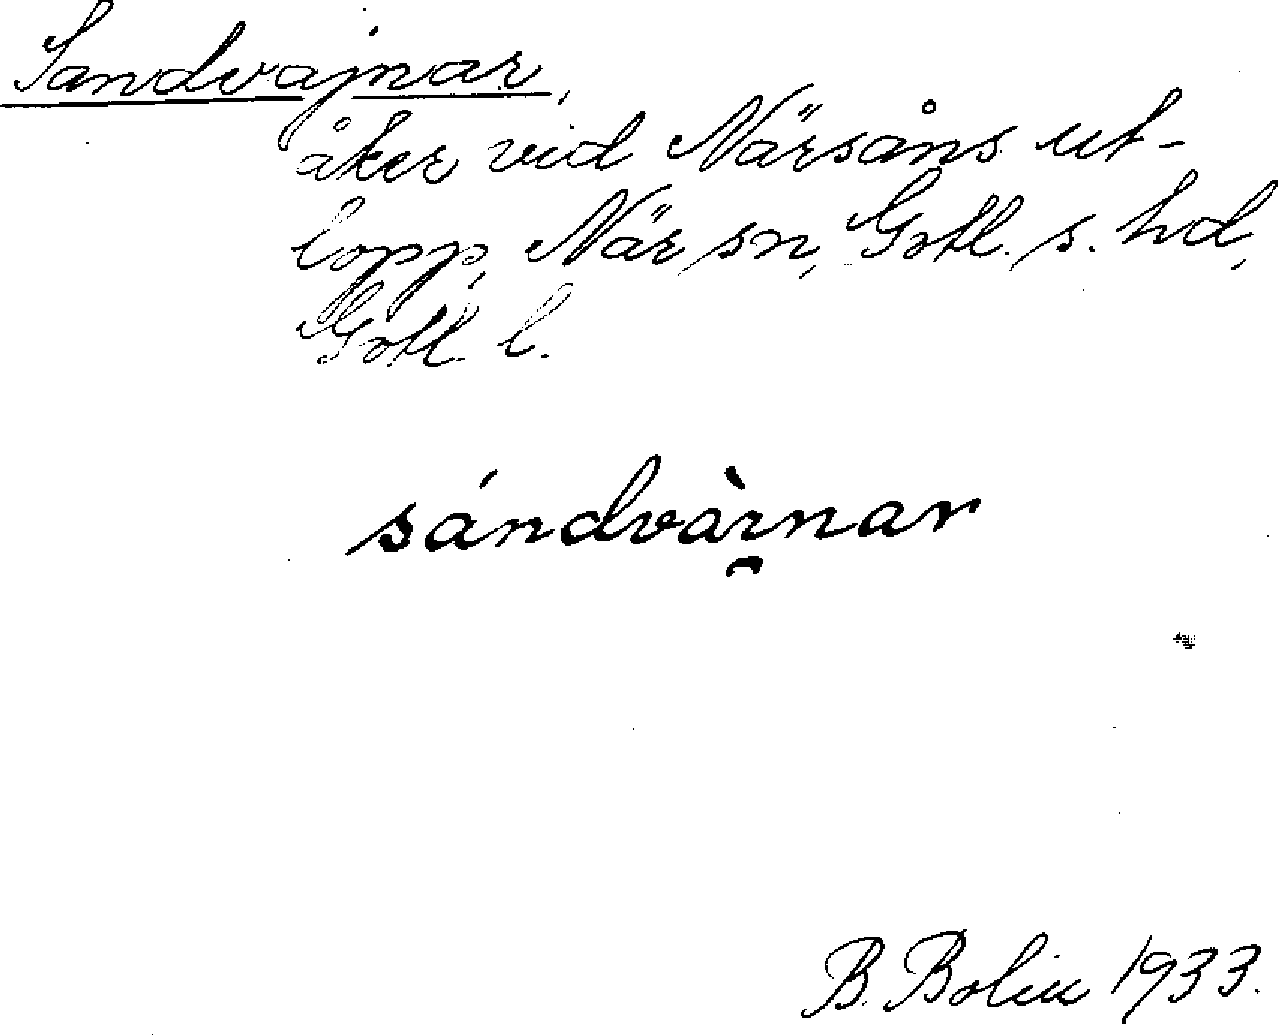 Sandvajnar,
åker vid Närsåns ut-
lopp, När sn, Gotl. s. hd,
Gotl. l.
sándvàı̯nar
B. Bolin 1933.